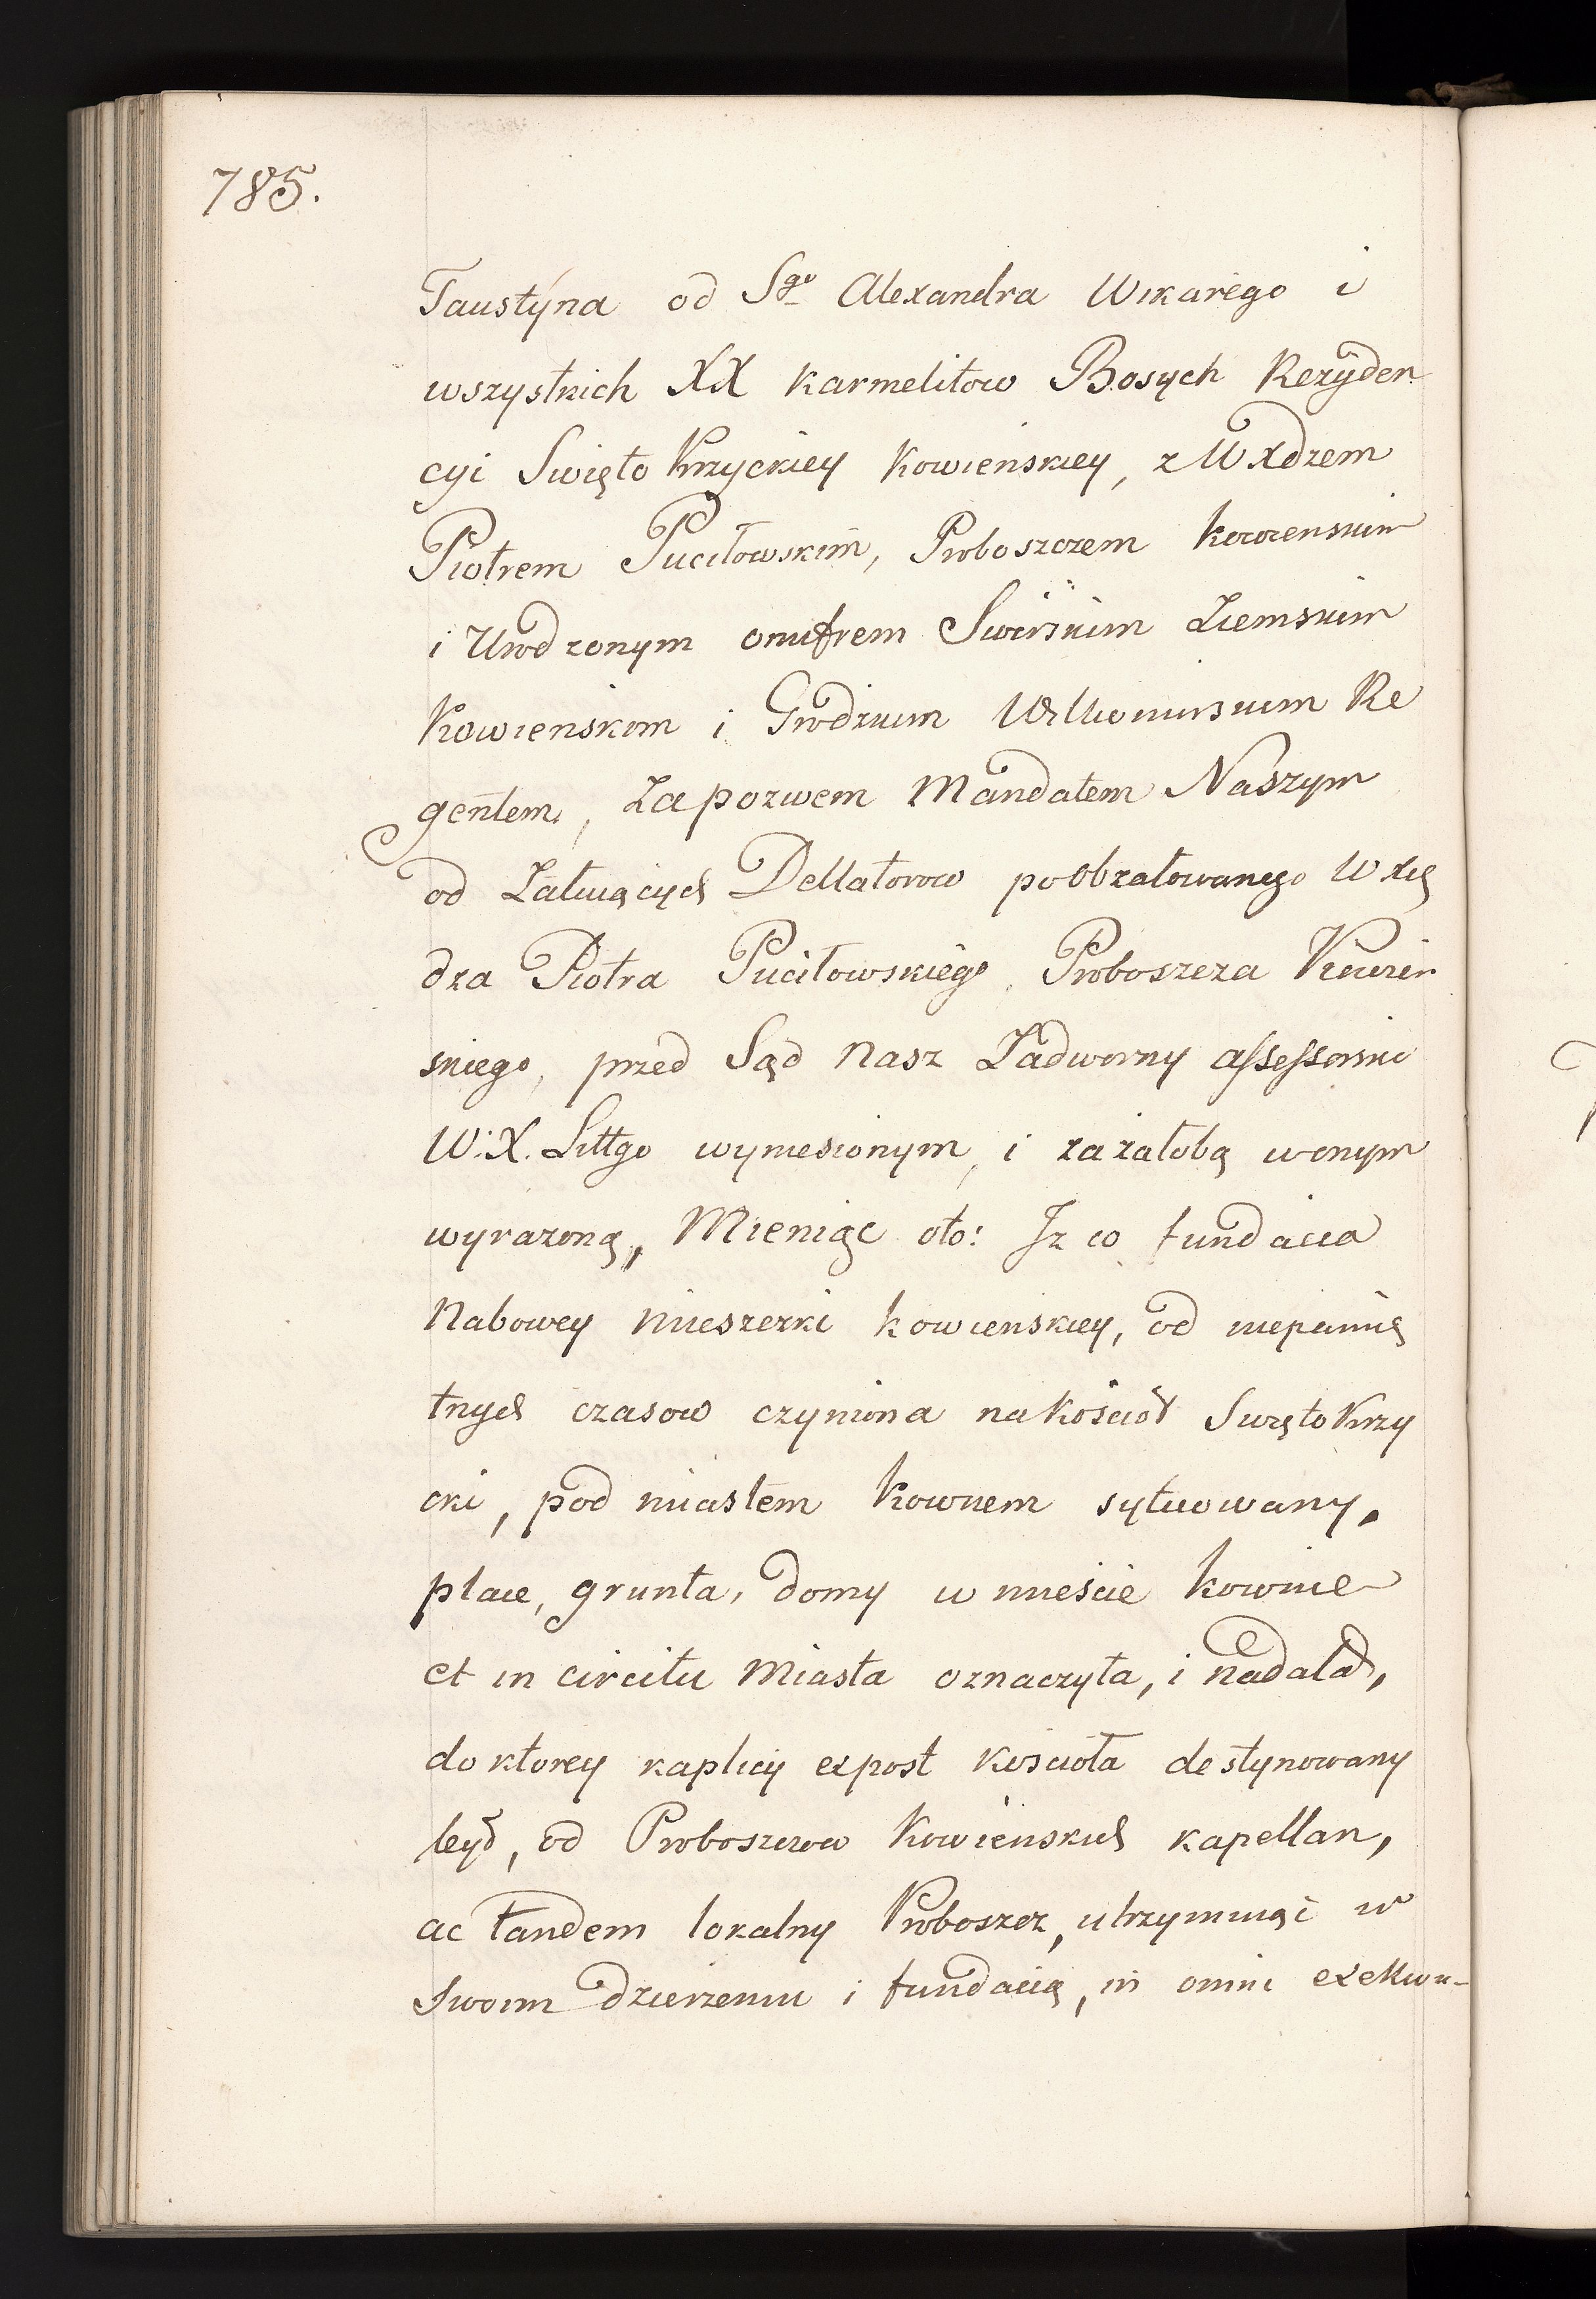 785.
Faustyna od Sgo Alexandra Wikarego i
wszystkich XX Karmelitow Bosych Rezyden
cyi Swięto Krzyckiey Kowienskiey, z W Xdzem
Piotrem Puciłowskim, Proboszczem kowienskim
i Urodzonym onufrem Swirskim Ziemskim
Kowienskim i Grodzkim Wilkomirskim Re
gentem, Zapozwem Mandatem Naszym
od Załuiących Dellatorow poobzałowanego W Xię
dza Piotra Puciłowskiego, Proboszcza Kowień
skiego, przed Sąd Nasz Zadworny assessorski
W: X. Littgo wyniesionym, i zażałobą wonym
wyrazoną, Mieniąc oto: Iz co fundacia
Nabowey mieszczki kowienskiey, od niepamię
tnych czasow czyniona na Kościoł Swięto Krzy
cki, pod miastem Kownem sytuowany,
place, grunta, domy w mieście kownie
et in circitu Miasta oznaczyła, i nadała,
do ktorey kaplicy expost kościoła destynowany
był, od Proboszczow Kowienskich kapellan,
ac tandem lokalny Proboszcz, utrzymuiąc w
Swoim dzierzeniu i fundacią, in omni exekwu-